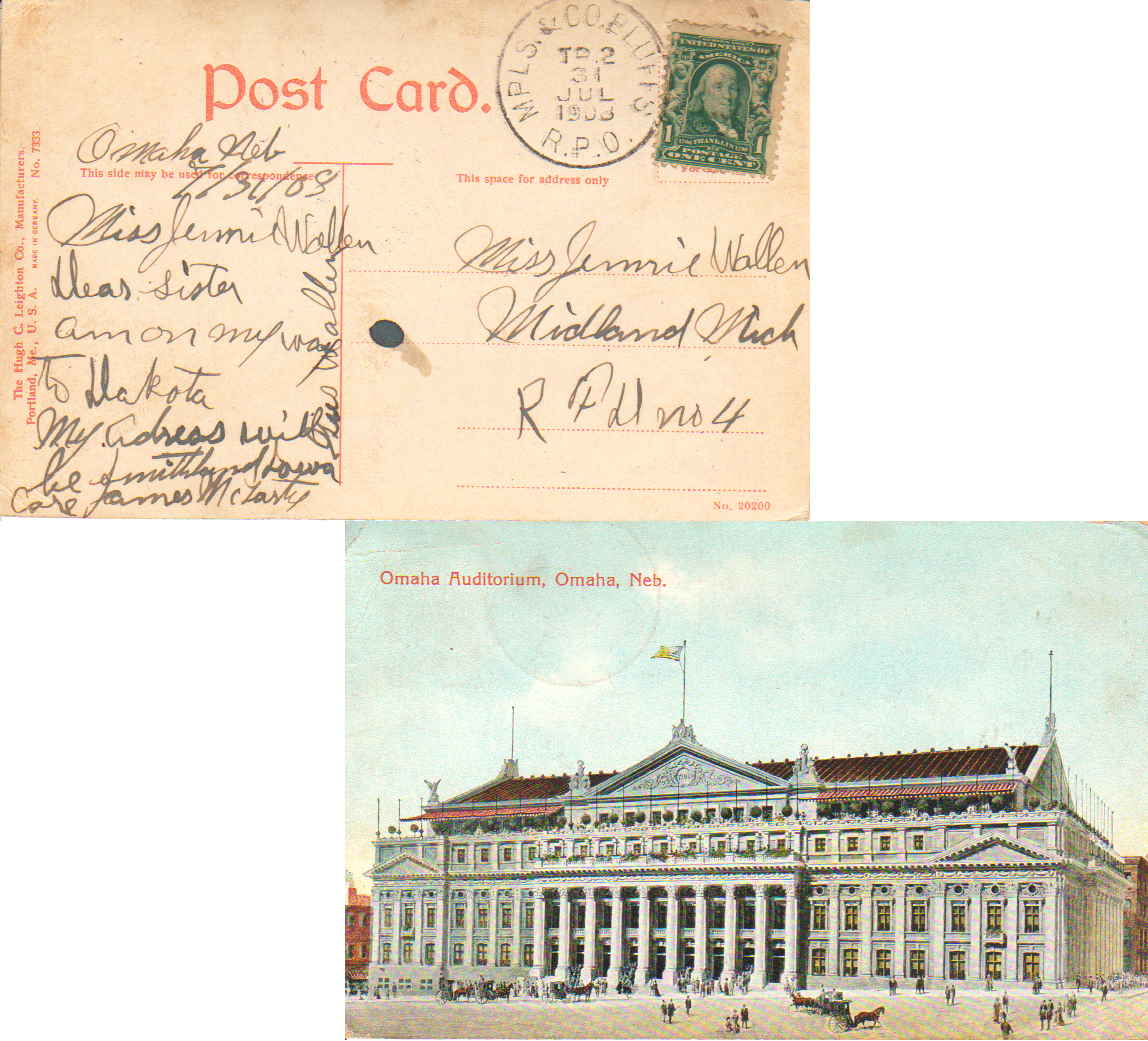 Post Card.
MPLS. & CO. BLUFFS
TR. 2
31
JUL
1908
R.P.O.
UNITED STATES OF
AMERICA
1 FRANKLIN 1
POSTAGE
ONE CENT
This side may be used for correspondence
This space for address only
Omaha Neb
7/31/08
Miss Jennie Wallen
Dear Sister
am on my way
to Dakota
My Adress will
be Smithland Iowa
Care James McCarty
Gus Wallen
Miss Jennie Wallen
Midland Mich
R F D no. 4
The Hugh C. Leighton Co., Manufacturers.
Portland, Me., U. S. A. MADE IN GERMANY. No. 7333
No. 20200
Omaha Auditorium, Omaha, Neb.